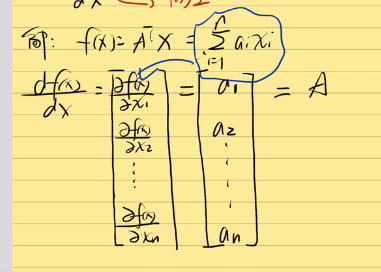 例: f(x) = Aᵀ X = \sum_{i=1}^{n} a_i x_i
\frac{df(x)}{dX} = \begin{bmatrix} \frac{∂f(x)}{∂x_1} \\ \frac{∂f(x)}{∂x_2} \\ ⋮ \\ \frac{∂f(x)}{∂x_n} \end{bmatrix} = \begin{bmatrix} a_1 \\ a_2 \\ ⋮ \\ a_n \end{bmatrix} = A